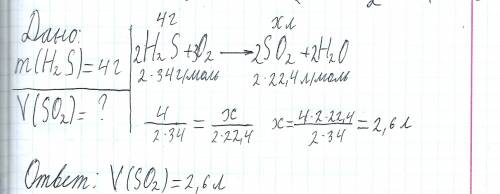 Дано:
m(H₂S)=4г
V(SO₂)=?
4г хл
2H₂S+3O₂ → 2SO₂+2H₂O
2·34г/моль 2·22,4л/моль
4/2·34 = x/2·22,4 x=4·2·22,4/2·34=2,6л
Ответ: V(SO₂)=2,6л